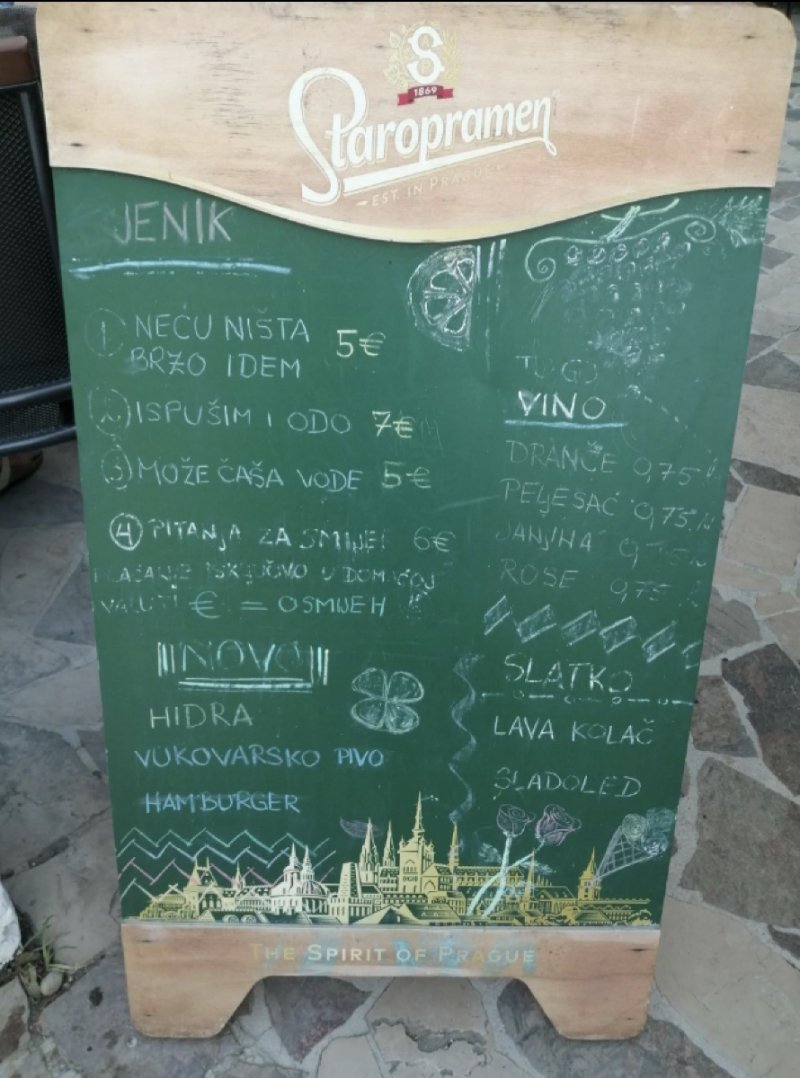 S
1869
Staropramen
EST. IN PRAGUE
JENIK
1 NEĆU NIŠTA
BRZO IDEM 5€
2 ISPUŠIM I ODO 7€
3 MOŽE ČAŠA VODE 5€
4 PITANJA ZA SMIJEŠ 6€
U DOM
€ = OSMIJEH
NOVO
HIDRA
VUKOVARSKO PIVO
HAMBURGER
TO GO
VINO
DRANČE 0,75
PELJEŠAC 0,75
JANJINA 0,75
ROSE 0,75
SLATKO
LAVA KOLAČ
SLADOLED
THE SPIRIT OF PRAGUE